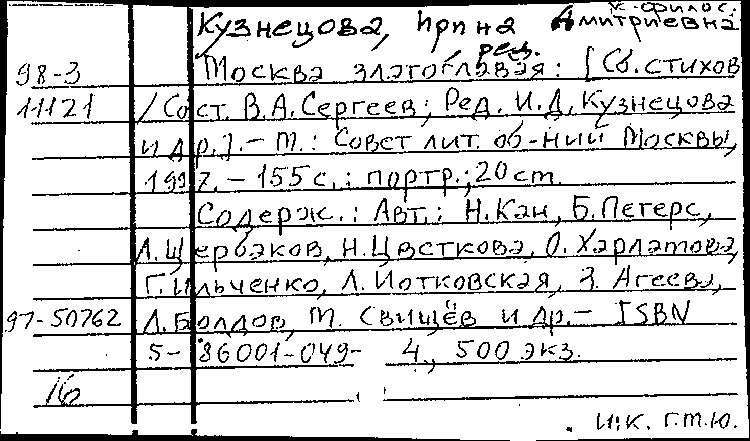 к. филос.
Кузнецова, Ирина Дмитриевна
ред.
98-3 Москва златоглавая: [Сб. стихов
11121 / Сост. В.А. Сергеев; Ред. И.Д. Кузнецова
и др.]. - М.: Совет лит. об-ний Москвы,
1997. - 155 с.: портр.; 20 cm.
Содерж.: Авт.: Н. Кан, Б. Петерс,
А. Щербаков, Н. Цветкова, О. Харламова,
Г. Ильченко, Л. Иотковская, З. Агеева,
97-50762 Л. Болдов, М. Свищёв и др. - ISBN
5-86001-049-4, 500 экз.
16
И.К. Г.М.Ю.